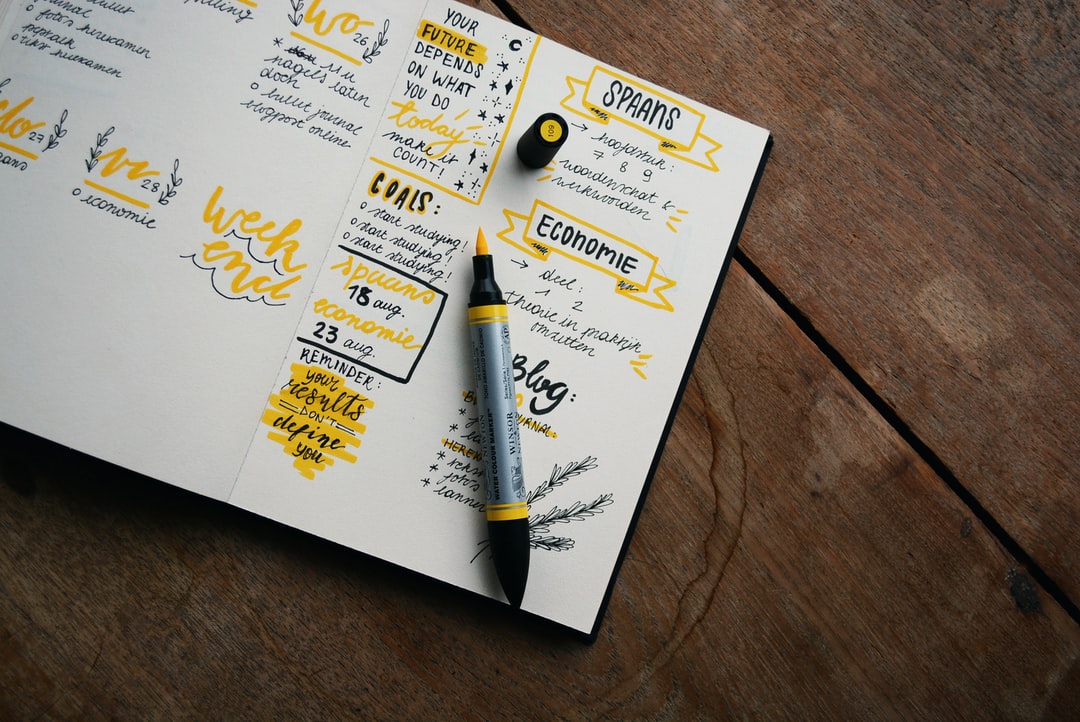 foto's herexamen
herexamen
wo 26
nagels laten
doen
bullet journal
blogpost online
do 27
vr 28
economie
week
end
YOUR
FUTURE
DEPENDS
ON WHAT
YOU DO
today
make it
COUNT!
GOALS:
start studying!
start studying!
start studying!
spaans
18 aug.
economie
23 aug.
REMINDER:
your
results
DON'T
define
you
SPAANS
→ hoofdstuk:
7 8 9
woordenschat &
werkwoorden
ECONOMIE
→ deel:
1 2
theorie in praktijk
omzetten
Blog:
109
WINSOR
WATER COLOUR MARKER